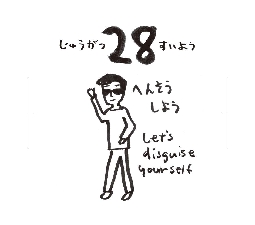 じゅうがつ 28 すいよう
へんそう
しよう
Let's
disguise
yourself